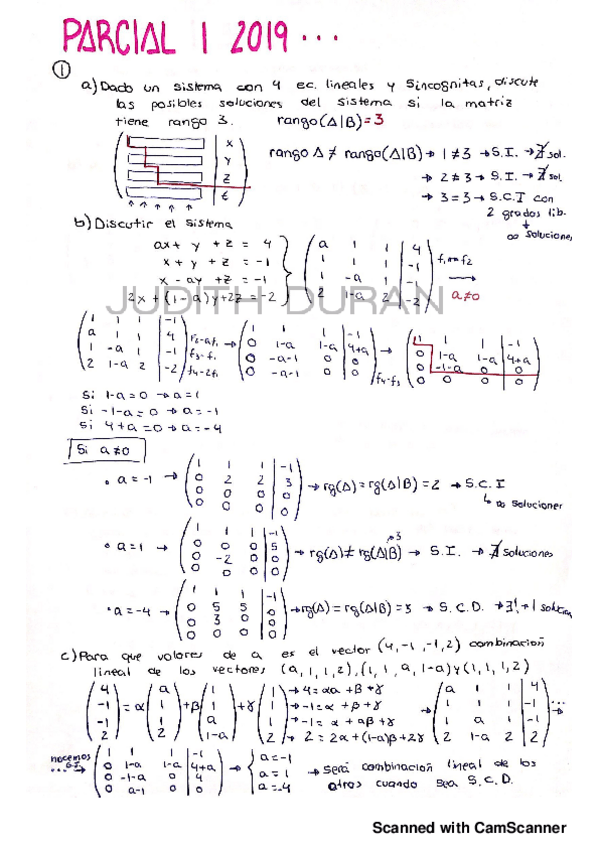 PARCIAL 1 2019...
①
a) Dado un sistema con 4 ec. lineales y 5 incognitas, discute
las posibles soluciones del sistema si la matriz
tiene rango 3. rango(A|B)=3
x
y
z
t
rango A ≠ rango(A|B) → 1≠3 → S.I. → ∄ sol.
→ 2≠3 → S.I. → ∄ sol.
→ 3=3 → S.C.I con
2 grados lib.
↓
∞ soluciones
b) Discutir el sistema
ax + y + z = 4
x + y + z = -1
x - ay + z = -1
2x + (1-a)y + 2z = -2
a 1 1 | 4
1 1 1 | -1
1 -a 1 | -1
2 1-a 2 | -2
f1↔f2
a≠0
JUDITH DURAN
1 1 1 | -1
a 1 1 | 4
1 -a 1 | -1
2 1-a 2 | -2
f2-af1
f3-f1
f4-2f1
1 1 1 | -1
0 1-a 1-a | 4+a
0 -a-1 0 | 0
0 -a-1 0 | 0
f4-f3
1 1 1 | -1
0 1-a 1-a | 4+a
0 -1-a 0 | 0
0 0 0 | 0
Si 1-a=0 → a=1
Si -1-a=0 → a=-1
Si 4+a=0 → a=-4
Si a≠0
• a=-1 →
1 1 1 | -1
0 2 2 | 3
0 0 0 | 0
0 0 0 | 0
→ rg(A)=rg(A|B)=2 → S.C.I
↳ ∞ soluciones
• a=1 →
1 1 1 | -1
0 0 0 | 5
0 -2 0 | 0
0 0 0 | 0
→ rg(A)≠rg(A|B) → S.I. → ∄ soluciones
3
• a=-4 →
1 1 1 | -1
0 5 5 | 0
0 3 0 | 0
0 0 0 | 0
→ rg(A)=rg(A|B)=3 → S.C.D. → ∃! → 1 solución
c) Para que valores de a es el vector (4,-1,-1,2) combinación
lineal de los vectores (a,1,1,2), (1,1,a,1-a) y (1,1,1,2)
4
-1
-1
2
= α
a
1
1
2
+β
1
1
a
1-a
+γ
1
1
1
2
→ 4=αa+β+γ
→ -1=α+β+γ
→ -1=α+aβ+γ
→ 2=2α+(1-a)β+2γ
a 1 1 | 4
1 1 1 | -1
1 a 1 | -1
2 1-a 2 | 2
→ ...
hacemos
... →
1 1 1 | -1
0 1-a 1-a | 4+a
0 -1-a 0 | 4
0 a-1 0 | 0
→
a=-1
a=1
a=-4
→ Será combinación lineal de los
otros cuando sea S.C.D.
Scanned with CamScanner